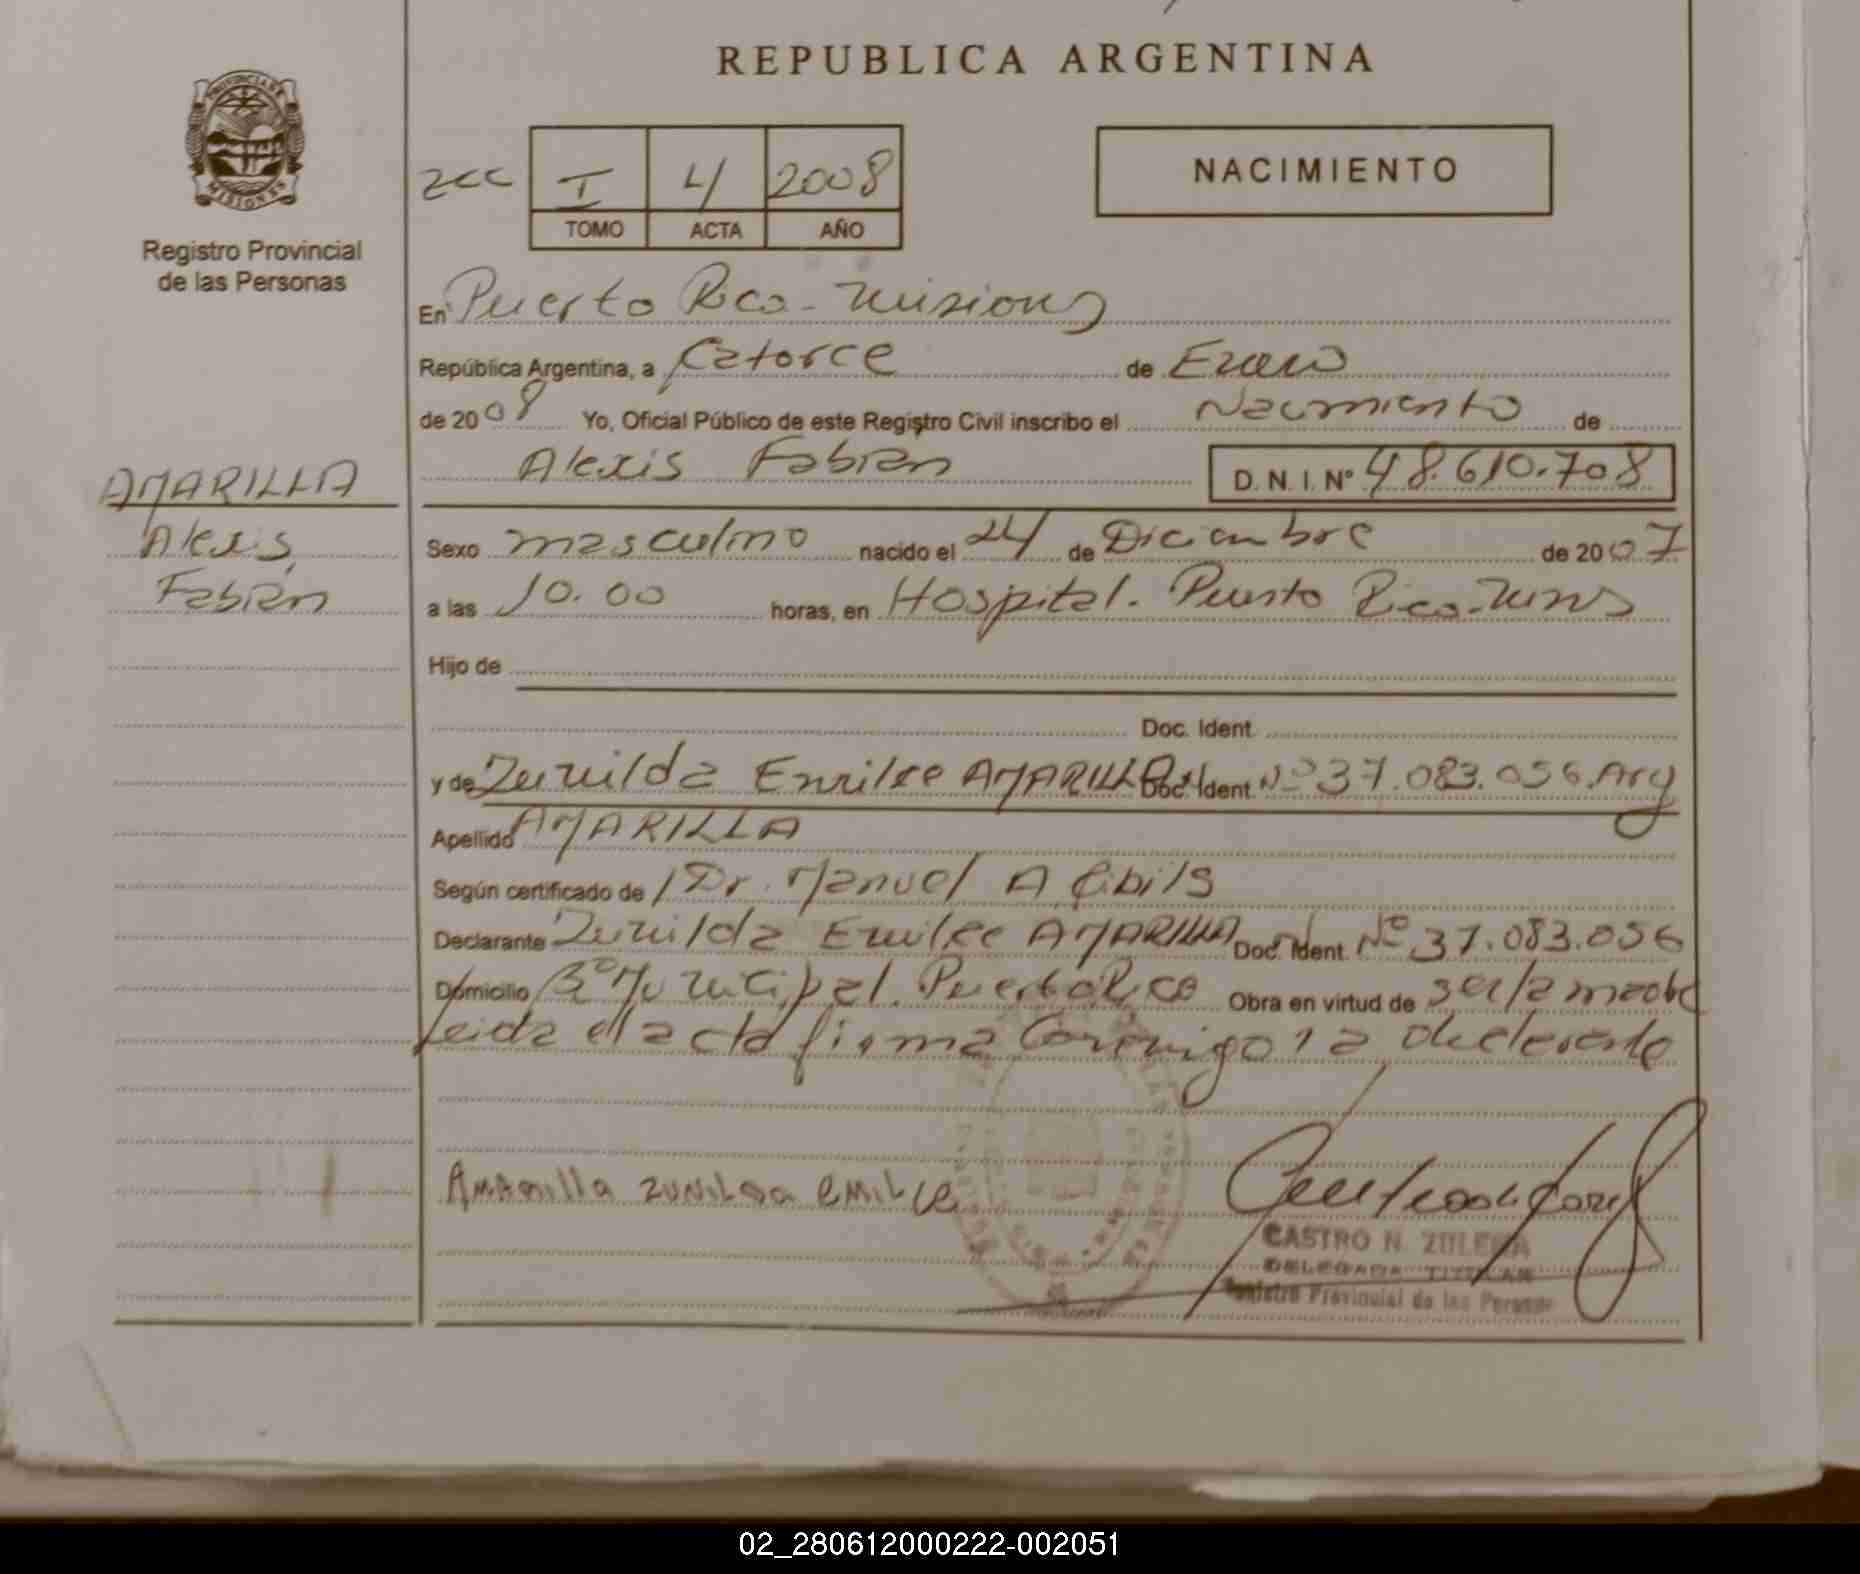 REPUBLICA ARGENTINA
PROVINCIA DE
MISIONES
Registro Provincial
de las Personas
I 4 2008
TOMO ACTA AÑO
NACIMIENTO
En Puerto Rico - Misiones
República Argentina, a Catorce de Enero
de 2008 Yo, Oficial Público de este Registro Civil inscribo el Nacimiento de
Alexis Fabian D. N. I. Nº 48.610.708
AMARILLA
Alexis,
Fabián
Sexo masculino nacido el 24 de Diciembre de 2007
a las 10.00 horas, en Hospital. Puerto Rico - Mnes
Hijo de
Doc. Ident.
y de Zunilda Emilce AMARILLA Doc. Ident. Nº 37.083.056. Arg
Apellido AMARILLA
Según certificado de Dr. Manuel A
Declarante Zunilda Emilce AMARILLA Doc. Ident. Nº 37.083.056
Domicilio Bº Municipal. Puerto Rico Obra en virtud de ser la madre
Leida el acta firma Conmigo la declarante
AMARILLA ZUNILDA EMILCE
CASTRO N. ZULEMA
DELEGADA TITULAR
Registro Provincial de las Personas
02_280612000222-002051